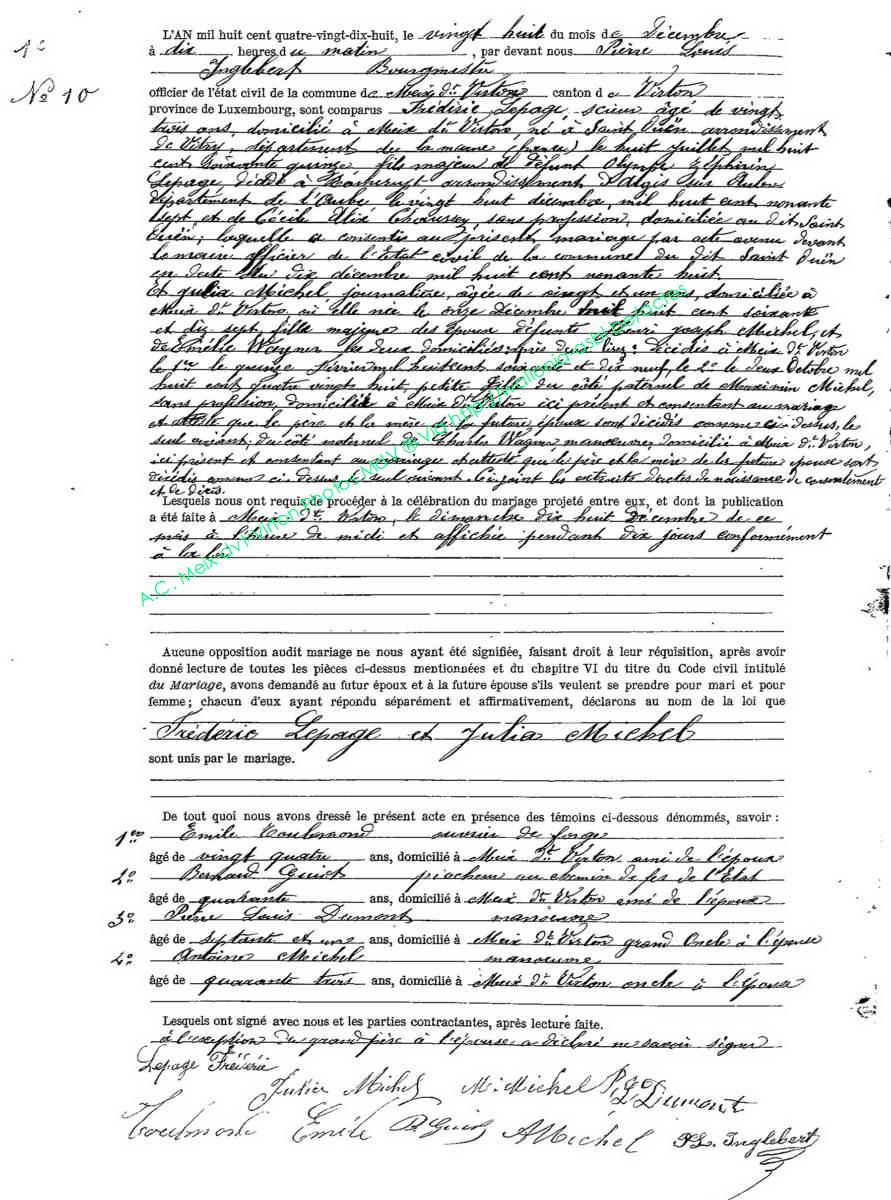 L'AN mil huit cent quatre-vingt-dix-huit, le vingt huit du mois de Décembre
1e
à dix heures du matin, par devant nous Pierre Louis
Inglebert Bourgmestre
No 10
officier de l'état civil de la commune de Meix dt Virton canton de Virton
province de Luxembourg, sont comparus Frédéric Lepage, scieur âgé de vingt
trois ans, domicilié à Meix dt Virton, né à Saint Ouën arrondissement
de Vitry, département de la marne (france) le huit Juillet mil huit
cent soixante quinze fils majeur de défunt Olympe Zéphirin
Lepage, décédé à arrondissement d'Arcis sur Aube
département de l'Aube le vingt huit décembre, mil huit cent nonante
sept et de Cécile Alix sans profession, domiciliée au dit Saint
Ouën, laquelle a consentie au présent mariage par acte avenu devant
le maire officier de l'Etat civil de la commune du dit Saint Ouën
en date du dix décembre mil huit cent nonante huit.
Et Julia Michel journalière, âgée de vingt et un ans, domiciliée à
Meix dt Virton où elle née le onze Décembre mil huit cent soixante
et dix sept, fille majeure des époux défunts Henri Joseph Michel, et
de Emélie Wagner les deux domiciliés: Décédés à Meix dt Virton
le 1er le quinze février mil huit cent soixante et dix neuf, le 2e le deux Octobre mil
huit cent quatre vingt huit petite fille du côté paternel de Maximin Michel,
sans profession, domicilié à Meix dt Virton ici présent et consentant au mariage
et atteste que le père et la mère de la future épouse sont décédés comme ci dessus, le
seul vivant, du côté maternel de Charles Wagner manoeuvre, domicilié à Meix dt Virton,
ici présent et consentant au mariage et atteste que le père et la mère de la future épouse sont
décédés comme ci dessus, seul vivant. Ci joint les extraits d'actes de naissance de consentement
et de décès.
Lesquels nous ont requis de procéder à la célébration du mariage projeté entre eux, et dont la publication
a été faite à Meix dt Virton, le dimanche dix huit Décembre de ce
mois à l'heure de midi et affichée pendant dix jours conformément
à la loi
A.C. Meix dvt Virton Photos MdlV @ Vig http://wallonia-asbl.be/actes
Aucune opposition audit mariage ne nous ayant été signifiée, faisant droit à leur réquisition, après avoir
donné lecture de toutes les pièces ci-dessus mentionnées et du chapitre VI du titre du Code civil intitulé
du Mariage, avons demandé au futur époux et à la future épouse s'ils veulent se prendre pour mari et pour
femme ; chacun d'eux ayant répondu séparément et affirmativement, déclarons au nom de la loi que
Frédéric Lepage et Julia Michel
sont unis par le mariage.
De tout quoi nous avons dressé le présent acte en présence des témoins ci-dessous dénommés, savoir :
1er Emile Toulmond ouvrier de forge
âgé de vingt quatre ans, domicilié à Meix dt Virton ami de l'époux
2e Bernard Guiot piocheur au chemin de fer de l'Etat
âgé de quarante ans, domicilié à Meix dt Virton ami de l'époux
3e Pierre Louis Dumont manoeuvre
âgé de septante et un ans, domicilié à Meix dt Virton grand Oncle à l'épouse
4e Antoine Michel manoeuvre
âgé de quarante trois ans, domicilié à Meix dt Virton oncle à l'épouse
Lesquels ont signé avec nous et les parties contractantes, après lecture faite.
à l'exception du grand père à l'épouse a déclaré ne savoir signer
Lepage Frédéric
Julia Michel M. Michel P. L. Dumont
Toulmond Emile B Guiot A Michel PL. Inglebert